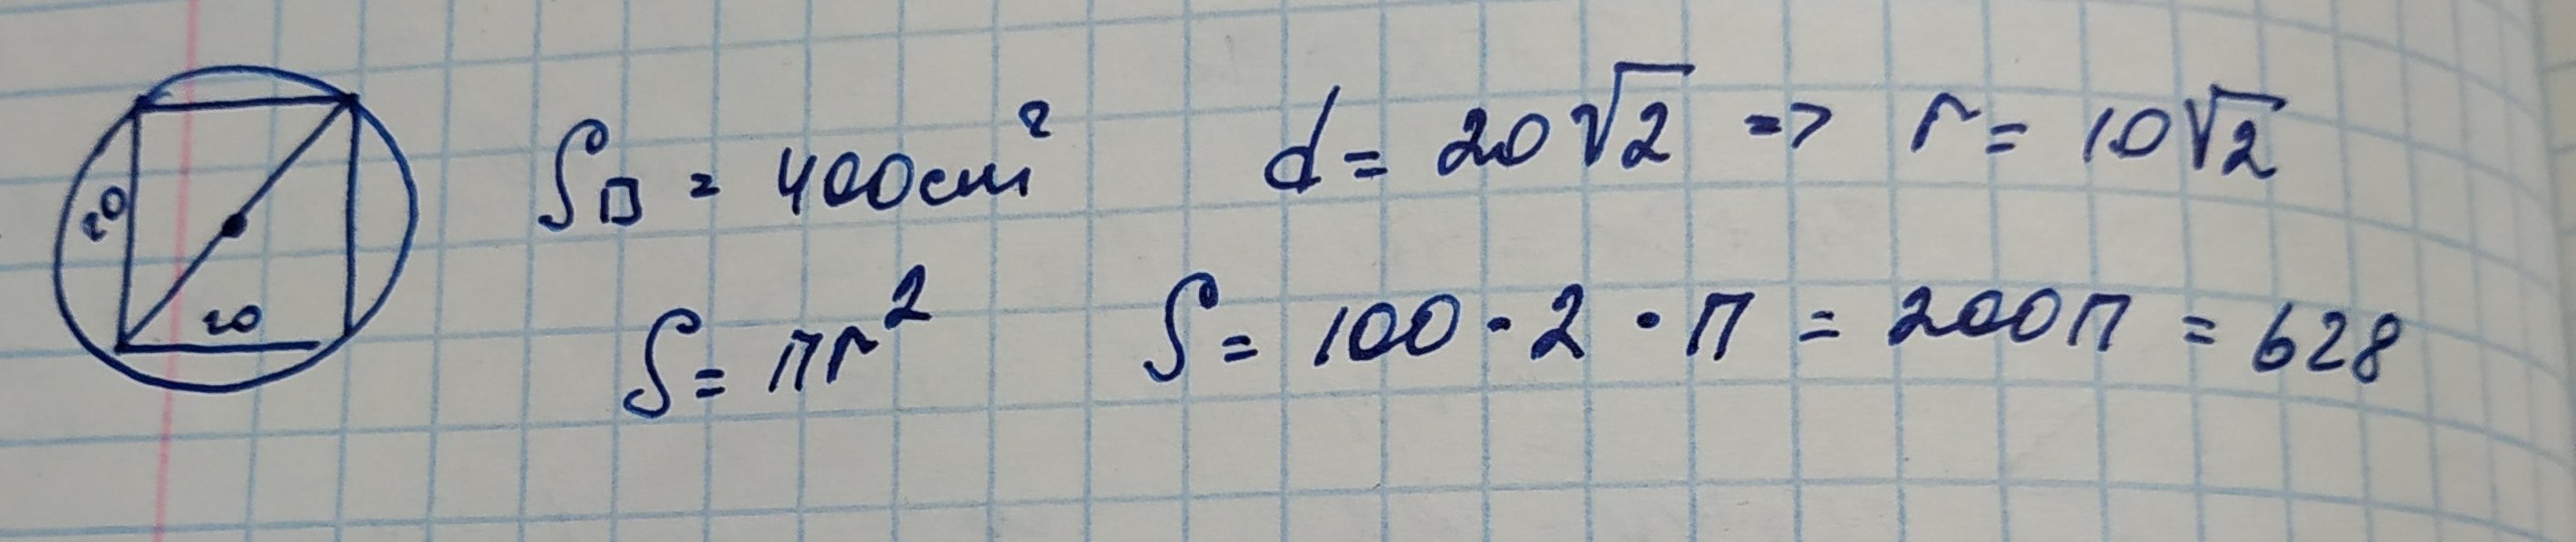 20
20
S□ = 400см² d = 20√2 => r = 10√2
S = πr² S = 100 · 2 · π = 200π = 628